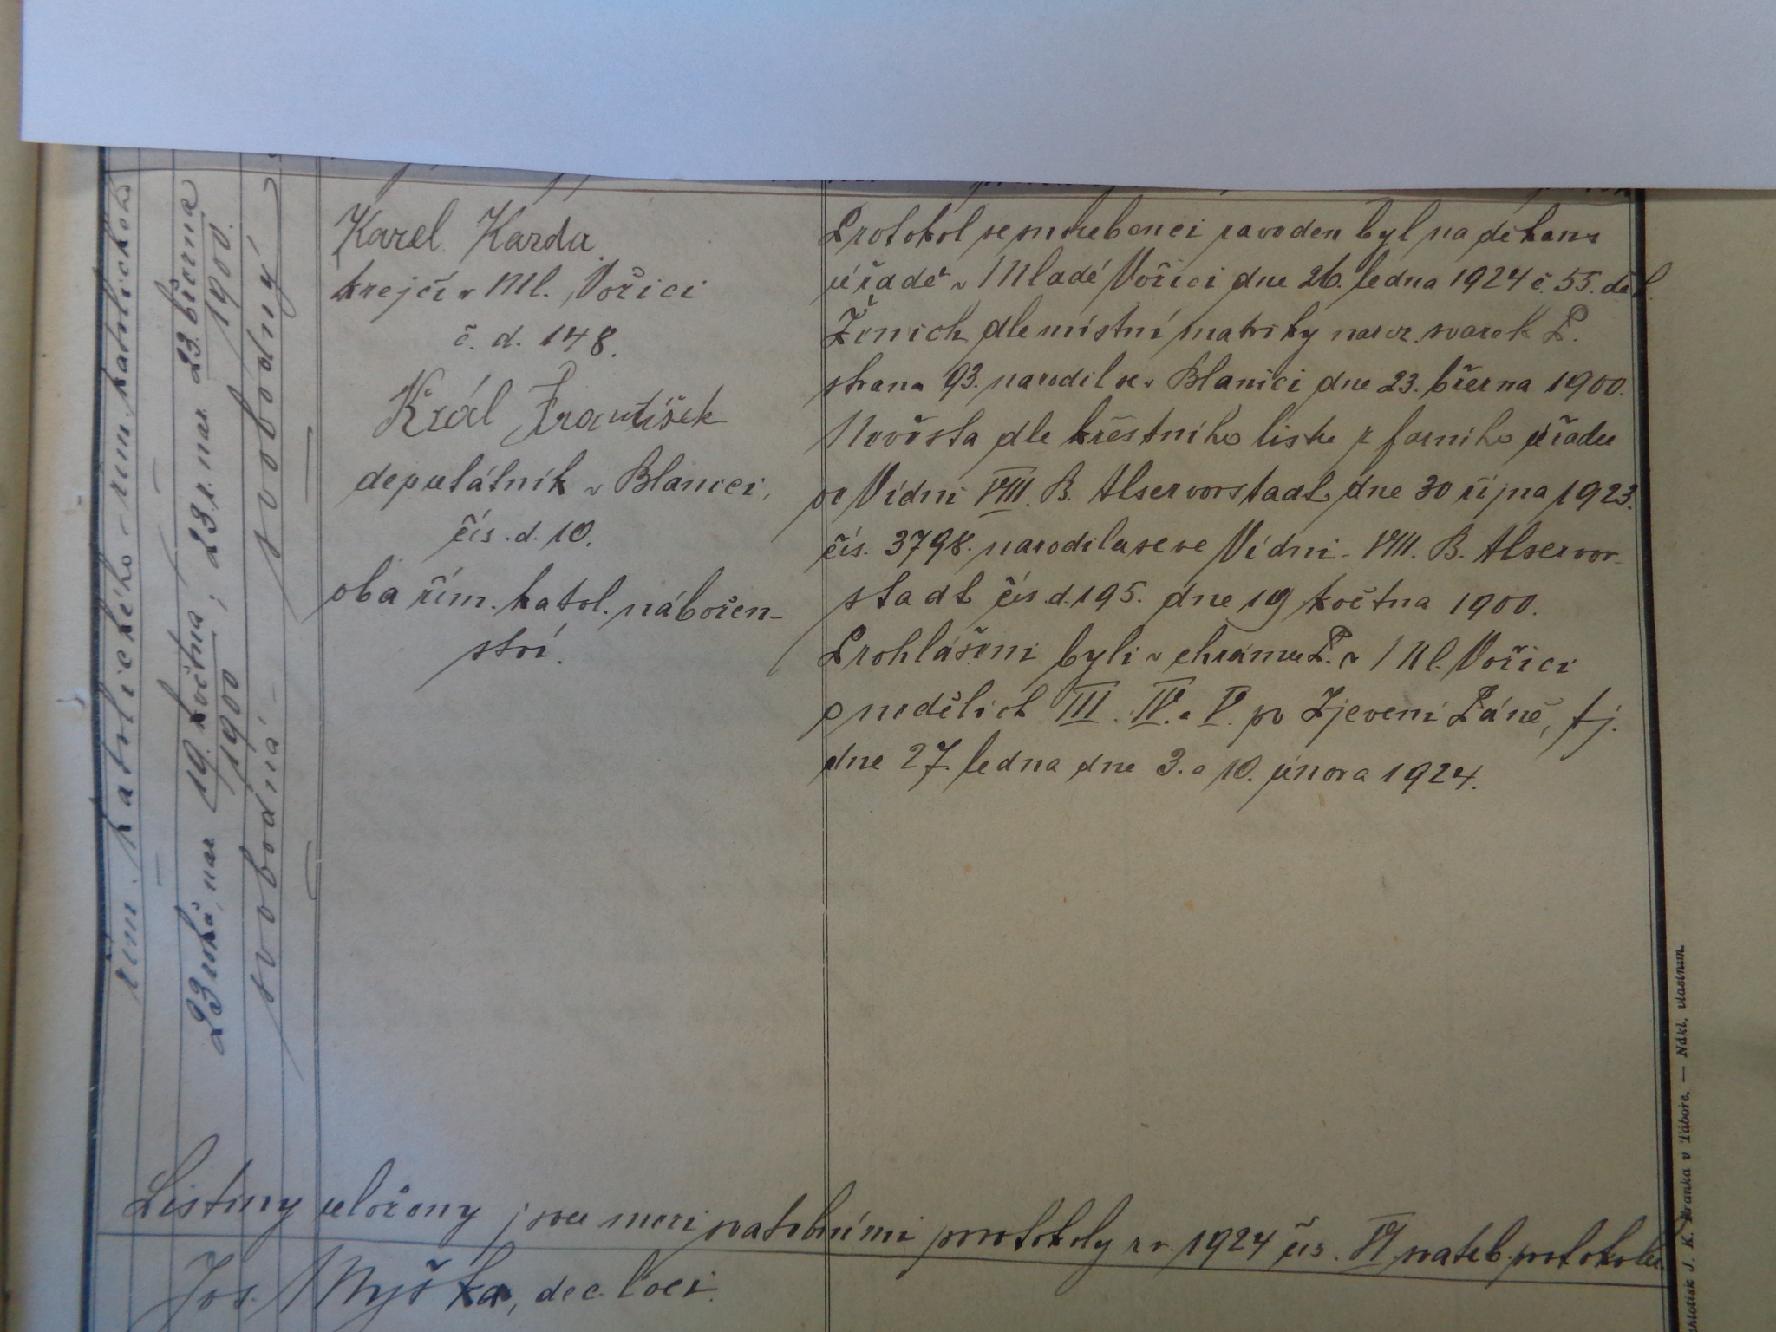 řím. katolického
řím. katolického
23 r. nar. 23. března
1900.
23 roků, nar. 19. května
1900
svobodný
svobodná
Karel Karda
krejčí v Ml. Vožici
č. d. 148.
Král František
deputátník v Blanici,
čís. d. 10.
oba řím. katol. nábožen-
ství.
Protokol se snoubenci zaveden byl na děkan.
úřadě v Mladé Vožici dne 26. ledna 1924 č. 55. děk.
Ženich dle místní matriky naroz. svazek
strana 93. narodil se v Blanici dne 23. března 1900.
Nevěsta dle křestního listu z farního úřadu
ve Vídni VIII. B. Alservorstadt, dne 30 října 1923.
čís. 3798. narodila se ve Vídni VIII. B. Alservor-
stadt čís d. 195. dne 19 května 1900.
Prohlášeni byli v chrámu P. v Ml. Vožici
o nedělích III. IV. a V. po Zjevení Páně, tj.
dne 27. ledna dne 3. a 10. února 1924.
Listiny uloženy jsou mezi svatebními protokoly z r. 1924 čís. VI svateb. protokolu
Jos. Myška, dec. loci.
J. K. Franka v Táboře. — Nákl. vlastním.